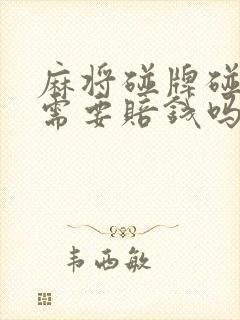 麻将碰牌碰
需要赔钱吗
韦西敏